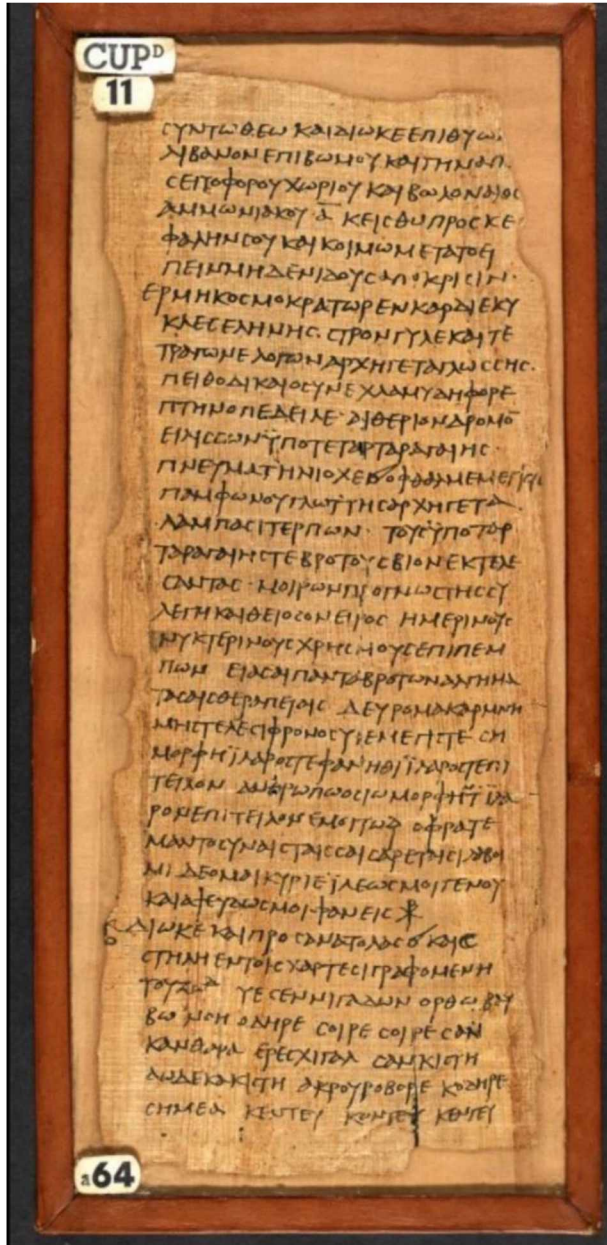 CUPᴰ
11
ϹΥΝΤΩΘΕΩ ΚΑΙΔΙΩΚΕΕΠΙΘΥΩ
ΛΙΒΑΝΟΝΕΠΙΒΩΜΟΥΚΑΙΓΗΝΑΠ
ϹΕΙΤΟΦΟΡΟΥΧΩΡΙΟΥΚΑΙΒΩΛΟΝΑΛΟϹ
ΑΜΜΩΝΙΑΚΟΥ Α ΚΕΙϹΘΩΠΡΟϹΚΕ
ΦΑΛΗΝϹΟΥΚΑΙΚΟΙΜΩΜΕΤΑΤΟΕΙ
ΠΕΙΝΜΗΔΕΝΙΔΟΥϹΑΠΟΚΡΙϹΙΝ
ΕΡΜΗΚΟϹΜΟΚΡΑΤΩΡΕΝΚΑΡΔΙΕΚΥ
ΚΛΕϹΕΛΗΝΗϹ. ϹΤΡΟΝΓΥΛΕΚΑΙΤΕ
ΤΡΑΓΩΝΕΛΟΓΩΝΑΡΧΗΓΕΤΑΓΛΩϹϹΗϹ.
ΠΕΙΘΟΔΙΚΑΙΟϹΥΝΕΧΛΑΜΥΔΗΦΟΡΕ
ΠΤΗΝΟΠΕΔΕΙΛΕ ΑΙΘΕΡΙΟΝΔΡΟΜΟ
ΕΙΛΙϹϹΩΝΫΠΟΤΕΤΑΡΤΑΡΑΓΑΙΗϹ
ΠΝΕΥΜΑΤΗΝΙΟΧΕ ΟΦΘΑΛΜΕΜΕΓΙϹΤΕ
ΠΑΜΦΩΝΟΥΓΛΩΤΤΗϹΑΡΧΗΓΕΤΑ
ΛΑΜΠΑϹΙΤΕΡΠΩΝ ΤΟΥϹΫΠΟΤΑΡ
ΤΑΡΑΓΑΙΗϹΤΕΒΡΟΤΟΥϹΒΙΟΝΕΚΤΕΛΕ
ϹΑΝΤΑϹ ΜΟΙΡΩΝΠΡΟΓΝΩϹΤΗϹϹΥ
ΛΕΓΗΚΑΙΘΕΙΟϹΟΝΕΙΡΟϹ ΗΜΕΡΙΝΟΥϹ
ΝΥΚΤΕΡΙΝΟΥϹΧΡΗϹΜΟΥϹΕΠΙΠΕΜ
ΠΩΝ ΕΙΑϹΑΙΠΑΝΤΑΒΡΟΤΩΝΑΛΓΗΜΑ
ΤΑϹΑΙϹΘΕΡΑΠΕΙΑΙϹ ΔΕΥΡΟΜΑΚΑΡΜΝΗ
ΜΗϹΤΕΛΕϹΙΦΡΟΝΟϹΥΙΕΜΕΓΙϹΤΕ ϹΗ
ΜΟΡΦΗΪΛΑΡΟϹΤΕΦΑΝΗΘΙΪΛΑΡΟϹΤΕΠΙ
ΤΕΙΛΟΝ ΑΝΘΡΩΠΩΟϹΙΩΜΟΡΦΗΝΤΪΛΑ
ΡΟΝΕΠΙΤΕΙΛΟΝΕΜΟΙΤΩΔ ΟΦΡΑΤΕ
ΜΑΝΤΟϹΥΝΑΙϹΤΑΙϹϹΑΙϹΑΡΕΤΑΙϹΙΛΑΒΟΙ
ΜΙ ΔΕΟΜΑΙΚΥΡΙΕΪΛΕΩϹΜΟΙΓΕΝΟΥ
ΚΑΙΑΨΕΥΔΩϹΜΟΙΦΑΝΕΙϹ
ΔΙΩΚΕ ΚΑΙΠΡΟϹΑΝΑΤΟΛΑϹ ΚΑΙ
ϹΤΗΛΗΕΝΤΟΙϹΧΑΡΤΕϹΙΓΡΑΦΟΜΕΝΗ
ΤΟΥΖΩΔ ΥΕϹΕΝΝΙΓΑΔΩΝ ΟΡΘΩ ΒΑΥ
ΒΩ ΝΟΗ ΟΔΗΡΕ ϹΟΙΡΕ ϹΟΙΡΕϹΑΝ
ΚΑΝΘΑΡΑ ΕΡΕϹΧΙΓΑΛ ϹΑΝΚΙϹΤΗ
ΔΩΔΕΚΑΚΙϹΤΗ ΑΚΡΟΥΡΟΒΟΡΕ ΚΟΔΗΡΕ
ϹΗΜΕΑ ΚΕΝΤΕΥ ΚΟΝΤΕΥ ΚΕΝΤΕΥ
a64